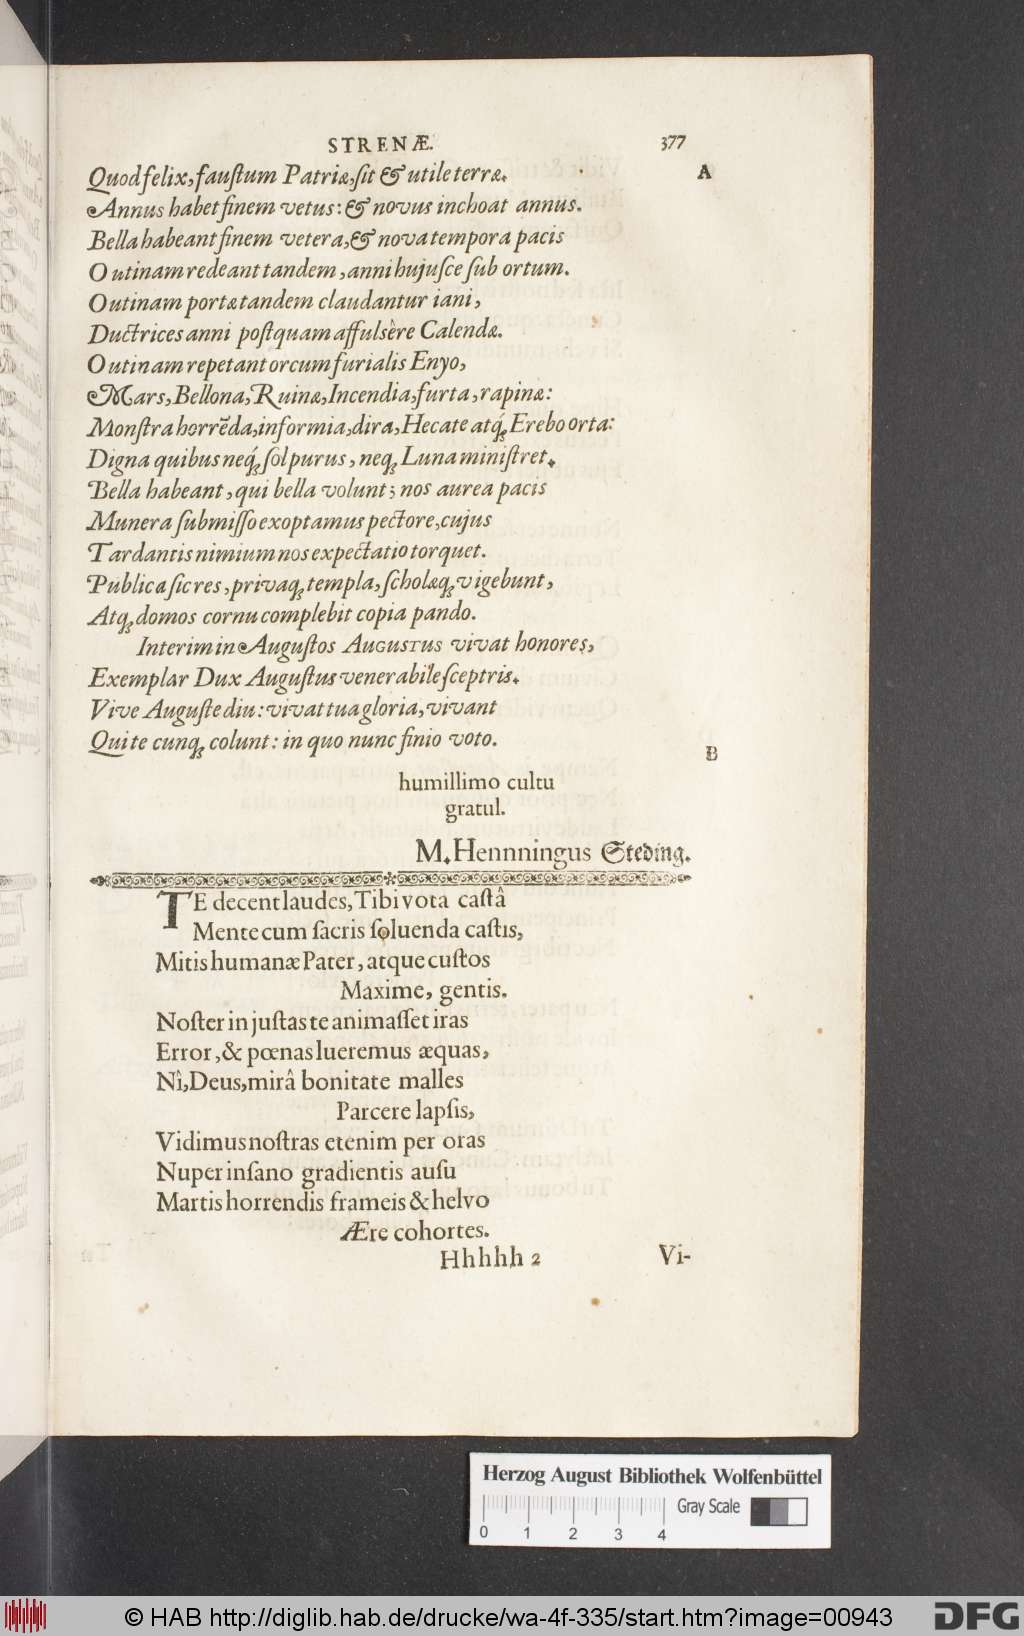 STRENÆ. 377
A
Quod felix, faustum Patriæ, sit & utile terræ.
Annus habet finem vetus: & novus inchoat annus.
Bella habeant finem vetera, & nova tempora pacis
O utinam redeant tandem, anni hujusce sub ortum.
O utinam portæ tandem claudantur iani,
Ductrices anni postquam affulsêre Calendæ.
O utinam repetant orcum furialis Enyo,
Mars, Bellona, Ruinæ, Incendia, furta, rapinæ:
Monstra horrẽda, informia, dira, Hecate atq́; Erebo orta:
Digna quibus neq́; sol purus, neq; Luna ministret.
Bella habeant, qui bella volunt; nos aurea pacis
Munera submisso exoptamus pectore, cujus
Tardantis nimium nos expectatio torquet.
Publica sic res, privaq; templa, scholæq; vigebunt,
Atq; domos cornu complebit copia pando.
Interim in Augustos AUGUSTUS vivat honores,
Exemplar Dux Augustus venerabile sceptris.
Vive Auguste diu: vivat tua gloria, vivant
Qui te cunq; colunt: in quo nunc finio voto.
B
humillimo cultu
gratul.
M. Hennningus Steding.
TE decent laudes, Tibi vota castâ
Mente cum sacris soluenda castis,
Mitis humanæ Pater, atque custos
Maxime, gentis.
Noster in justas te animasset iras
Error, & pœnas lueremus æquas,
Nî, Deus, mirâ bonitate malles
Parcere lapsis,
Vidimus nostras etenim per oras
Nuper insano gradientis ausu
Martis horrendis frameis & helvo
Ære cohortes.
Hhhhh 2 Vi-
Herzog August Bibliothek Wolfenbüttel
Gray Scale
0 1 2 3 4
© HAB http://diglib.hab.de/drucke/wa-4f-335/start.htm?image=00943
DFG